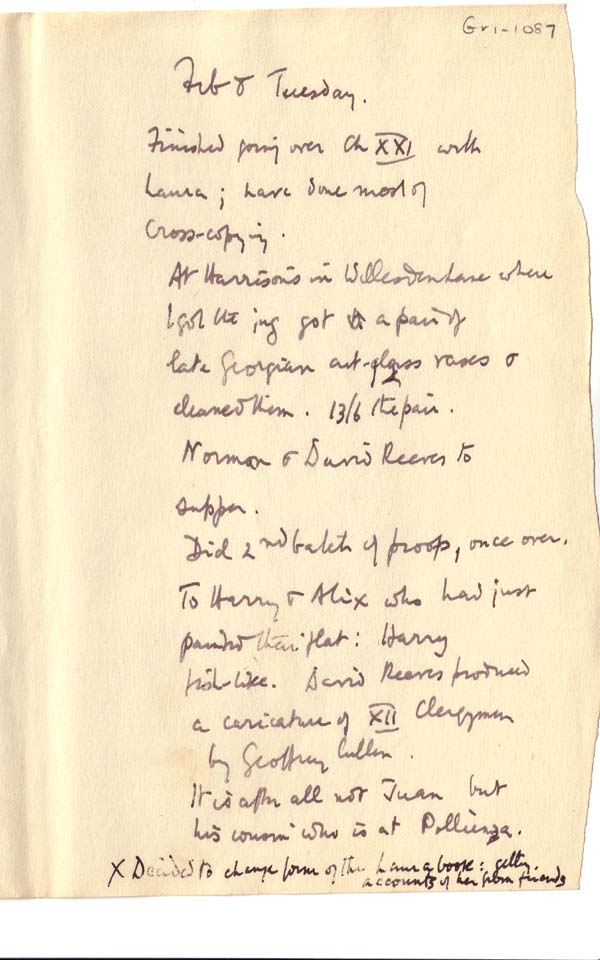 Gr1-1087
Feb 8 Tuesday.
Finished going over Ch XXI with
Laura; have done most of
Cross-copying.
At Harrison's in Willesden Lane where
I got the jug got a pair of
late Georgian cut-glass vases &
cleaned them. 13/6 the pair.
Norman & David Reeves to
supper.
Did 2nd batch of proofs, once over.
To Harry & Alix who had just
painted their flat: Harry
fish-like. David Reeves produced
a caricature of XII Clergymen
by Geoffrey Cullen.
It is after all not Juan but
his cousin who is at Pollienza.
X Decided to change form of the Laura book: getting
accounts of her from friends